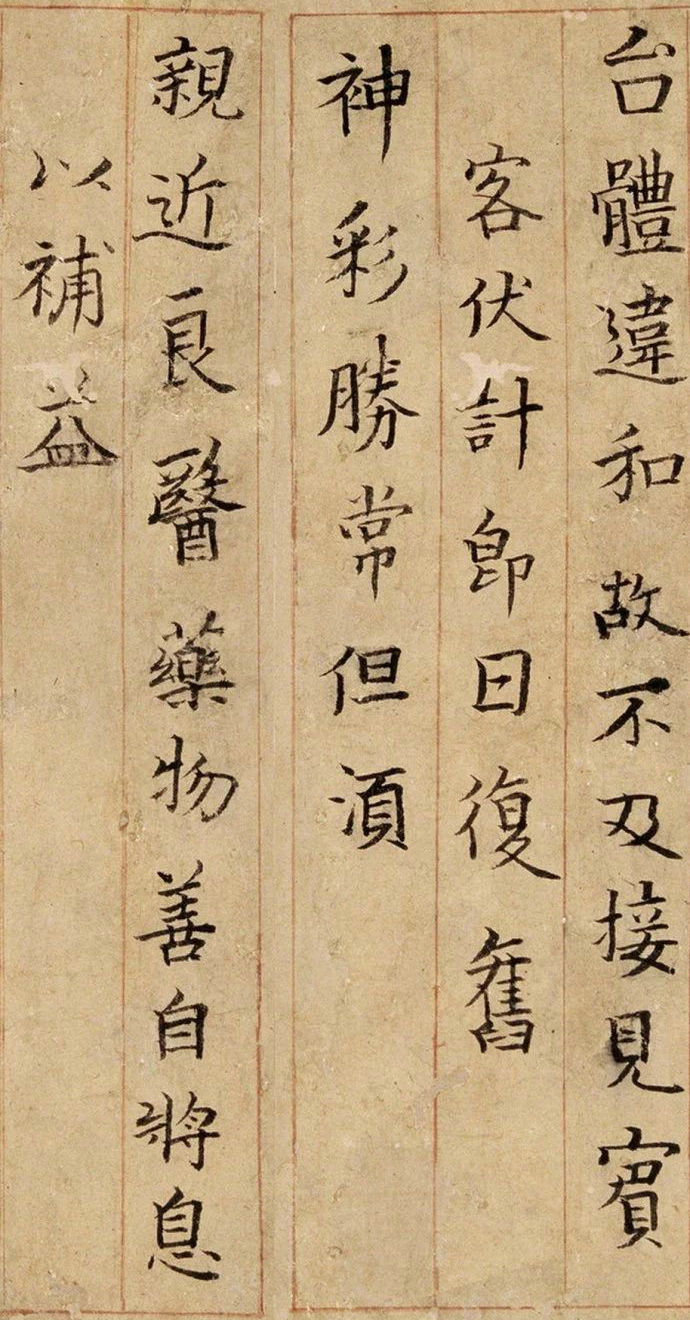 台體違和故不及接見賓
客伏計即日復舊
神彩勝常但湏
親近良醫藥物善自將息
以補益